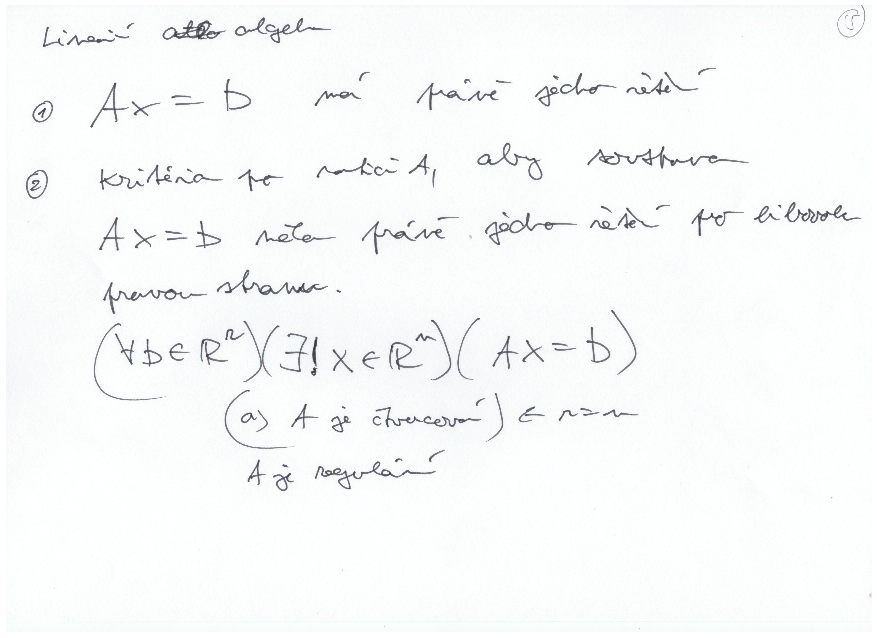 Lineární algebra
5
① Ax = b má právě jedno řešení
② Kritéria po matici A, aby soustava
Ax = b měla právě jedno řešení po libovolnou
pravou stranu.
(∀b ∈ ℝⁿ)(∃! x ∈ ℝᵐ)(Ax = b)
(a) A je čtvercová) ∈ n = m
A je regulární